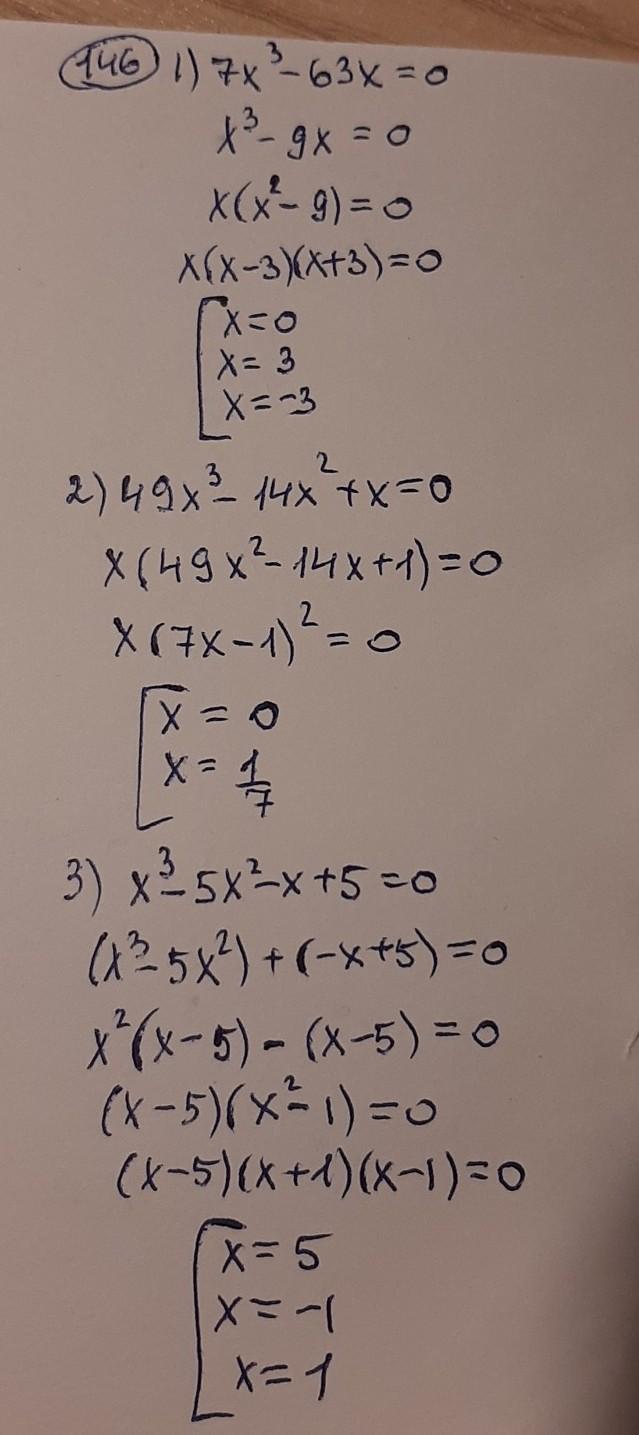 146 1) 7x³ - 63x = 0
x³ - 9x = 0
x(x² - 9) = 0
x(x-3)(x+3) = 0
[ x = 0
x = 3
x = -3
2) 49x³ - 14x² + x = 0
x(49x² - 14x + 1) = 0
x(7x - 1)² = 0
[ x = 0
x = 1/7
3) x³ - 5x² - x + 5 = 0
(x³ - 5x²) + (-x + 5) = 0
x²(x - 5) - (x - 5) = 0
(x - 5)(x² - 1) = 0
(x - 5)(x + 1)(x - 1) = 0
[ x = 5
x = -1
x = 1